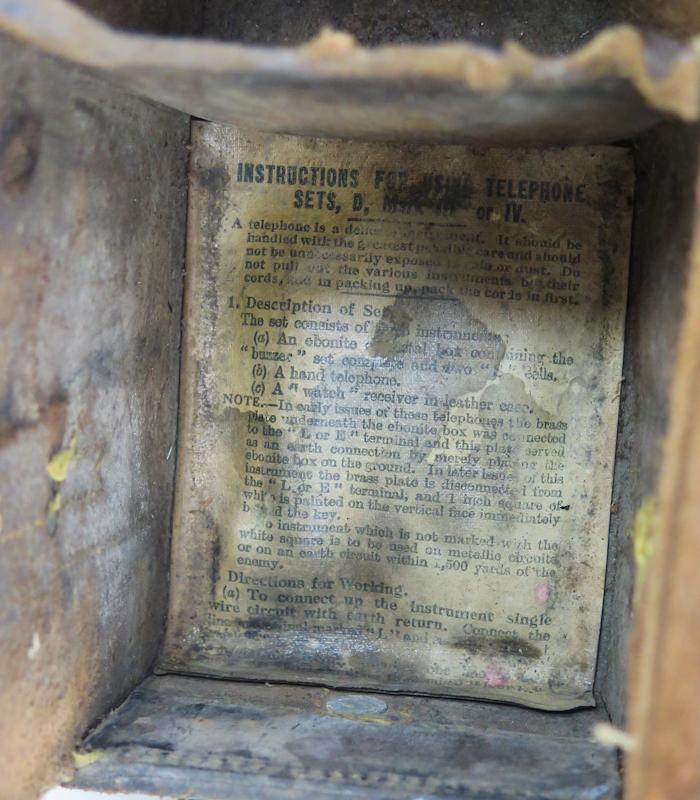 INSTRUCTIONS FOR USING TELEPHONE
SETS, D, or IV.
A telephone is a instrument. It should be
handled with the greatest possible care and should
not be unnecessarily exposed to or dust. Do
not pull out the various instruments by their
cords, and in packing up, pack the cords in first.
1. Description of Set
The set consists of instruments
(a) An ebonite box containing the
"buzzer" set complete and two cells.
(b) A hand telephone.
(c) A "watch" receiver in leather case.
NOTE.—In early issues of these telephones the brass
plate underneath the ebonite box was connected
to the "L or E" terminal and this plate served
as an earth connection by merely placing the
ebonite box on the ground. In later issues of this
instrument the brass plate is disconnected from
the "L or E" terminal, and 1 inch square of
is painted on the vertical face immediately
behind the key.
No instrument which is not marked with the
white square is to be used on metallic circuits
or on an earth circuit within 1,500 yards of the
enemy.
Directions for Working.
(a) To connect up the instrument single
wire circuit with earth return. Connect the
line terminal marked "L" and